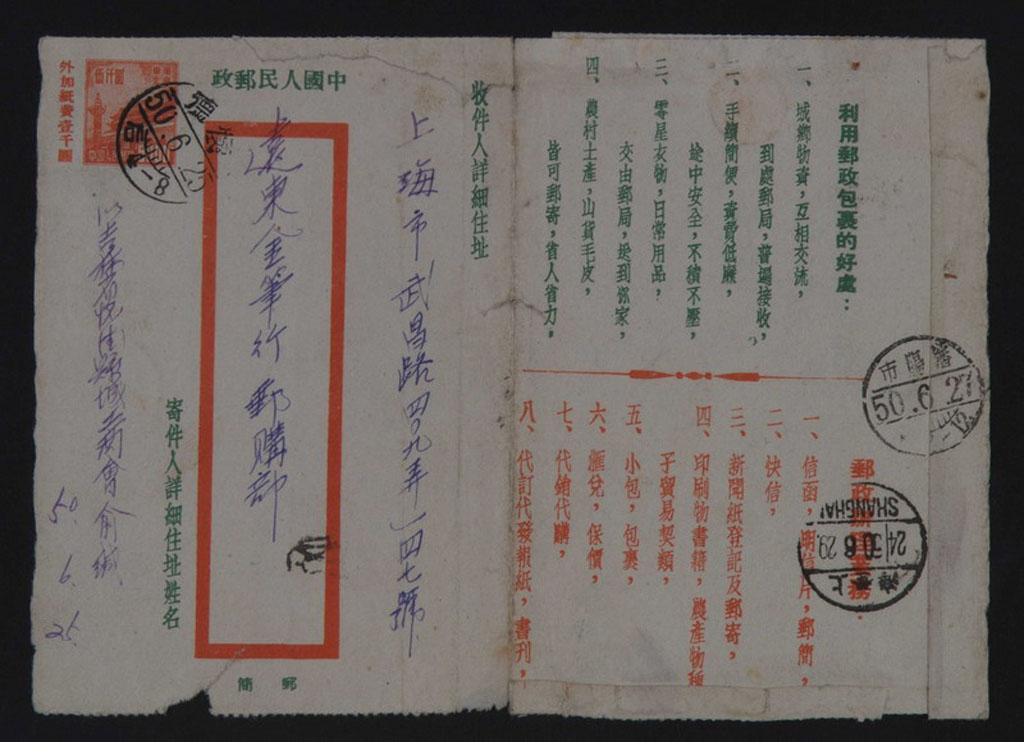 中國人民郵政
外加紙費壹千圓
伍仟圓
50.6.25
收件人詳細住址
上海市武昌路四〇九弄一四七號
遠東金筆行郵購部
寄件人詳細住址姓名
城工商會俞緘
50. 6. 25.
郵簡
利用郵政包裹的好處：
一、城鄉物資，互相交流，
到處郵局，普遍接收，
二、手續簡便，資費低廉，
途中安全，不積不壓，
三、零星衣物，日常用品，
交由郵局，送到你家，
四、農村土產，山貨毛皮，
皆可郵寄，省人省力。
郵政辦理業務：
一、信函，明信片，郵簡，
二、快信，
三、新聞紙登記及郵寄，
四、印刷物書籍，農產物種
子貿易契類，
五、小包，包裹，
六、匯兌，保價，
七、代銷代購，
八、代訂代發報紙，書刊，
瀋陽市
50.6.27
上海
24 50 6 29
SHANGHAI